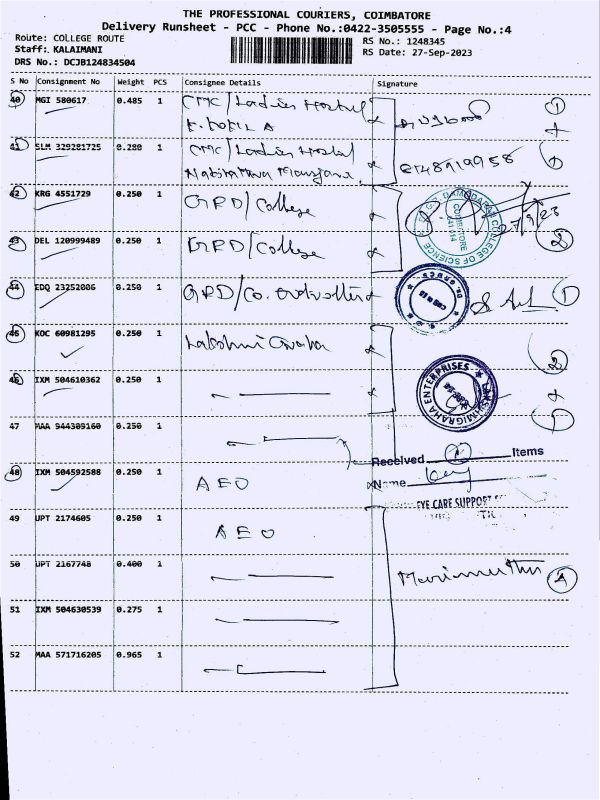 THE PROFESSIONAL COURIERS, COIMBATORE
Delivery Runsheet - PCC - Phone No.:0422-3505555 - Page No.:4
Route: COLLEGE ROUTE
RS No.: 1248345
Staff: KALAIMANI
RS Date: 27-Sep-2023
DRS No.: DCJB124834504
S No Consignment No Weight PCS Consignee Details Signature
40 MGI 580617 0.485 1 CMC/Ladies Hostel
K. KOKILA
41 SLM 329281725 0.280 1 CMC/Ladies Hostel
42 KRG 4551729 0.250 1 GRD/College
27/9/23
43 DEL 120999489 0.250 1 GRD/College
2
44 EDQ 23252086 0.250 1 GRD/Co.
1
45 KOC 60981295 0.250 1 Lakshmi
2
46 IXM 504610362 0.250 1
LAKSHMIGRAHA ENTERPRISES
47 MAA 944309160 0.250 1
Received 1 Items
48 IXM 504592588 0.250 1 AEO
Name
EYE CARE SUPPORT
49 UPT 2174605 0.250 1 AEO
50 UPT 2167748 0.400 1
Marimuthu 4
51 IXM 504630539 0.275 1
52 MAA 571716205 0.965 1